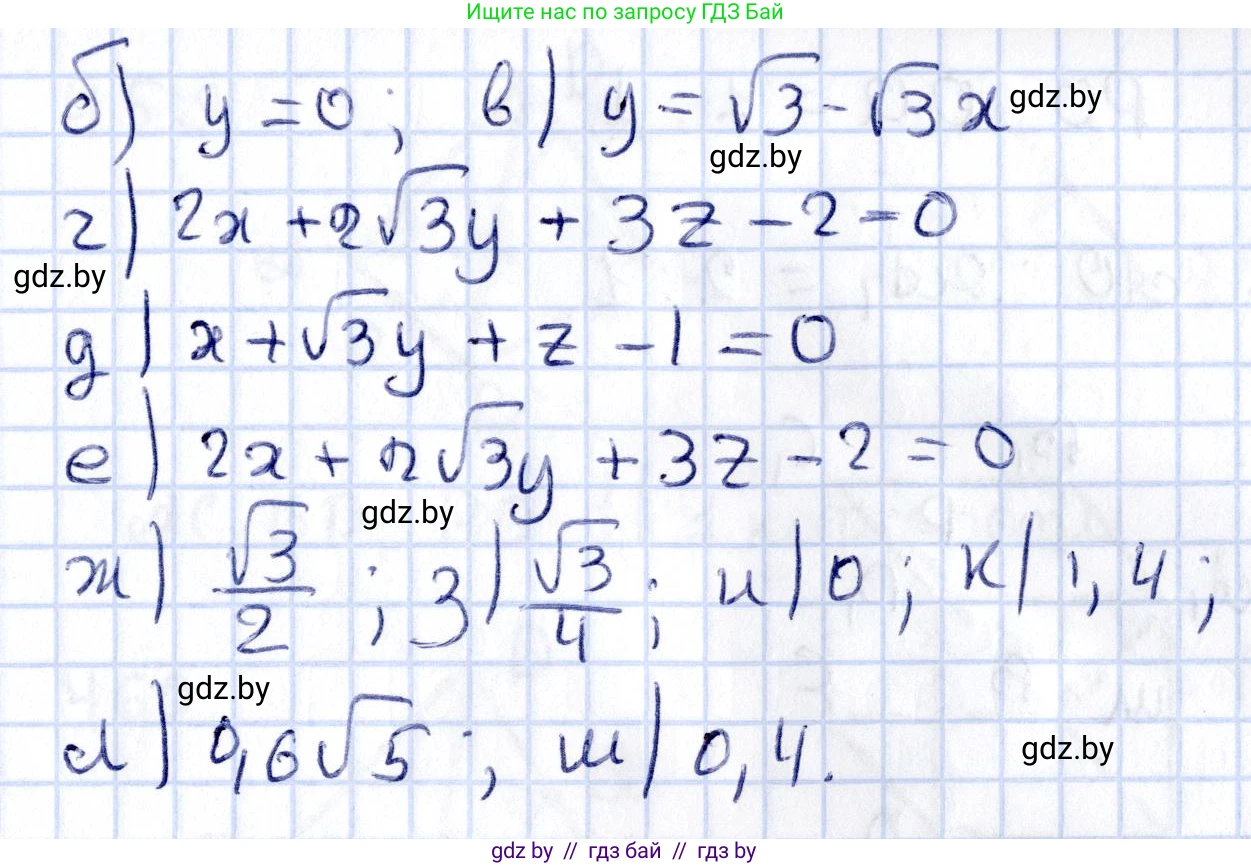 Ищите нас по запросу ГДЗ Бай
б) y = 0; в) y = √3 - √3 x gdz.by
gdz.by
г) 2x + 2√3y + 3z - 2 = 0
gdz.by
д) x + √3y + z - 1 = 0
е) 2x + 2√3y + 3z - 2 = 0
gdz.by
ж) √3/2; з) √3/4; и) 0; к) 1,4;
gdz.by
л) 0,6√5; м) 0,4.
gdz.by
gdz by // гдз бай // gdz by